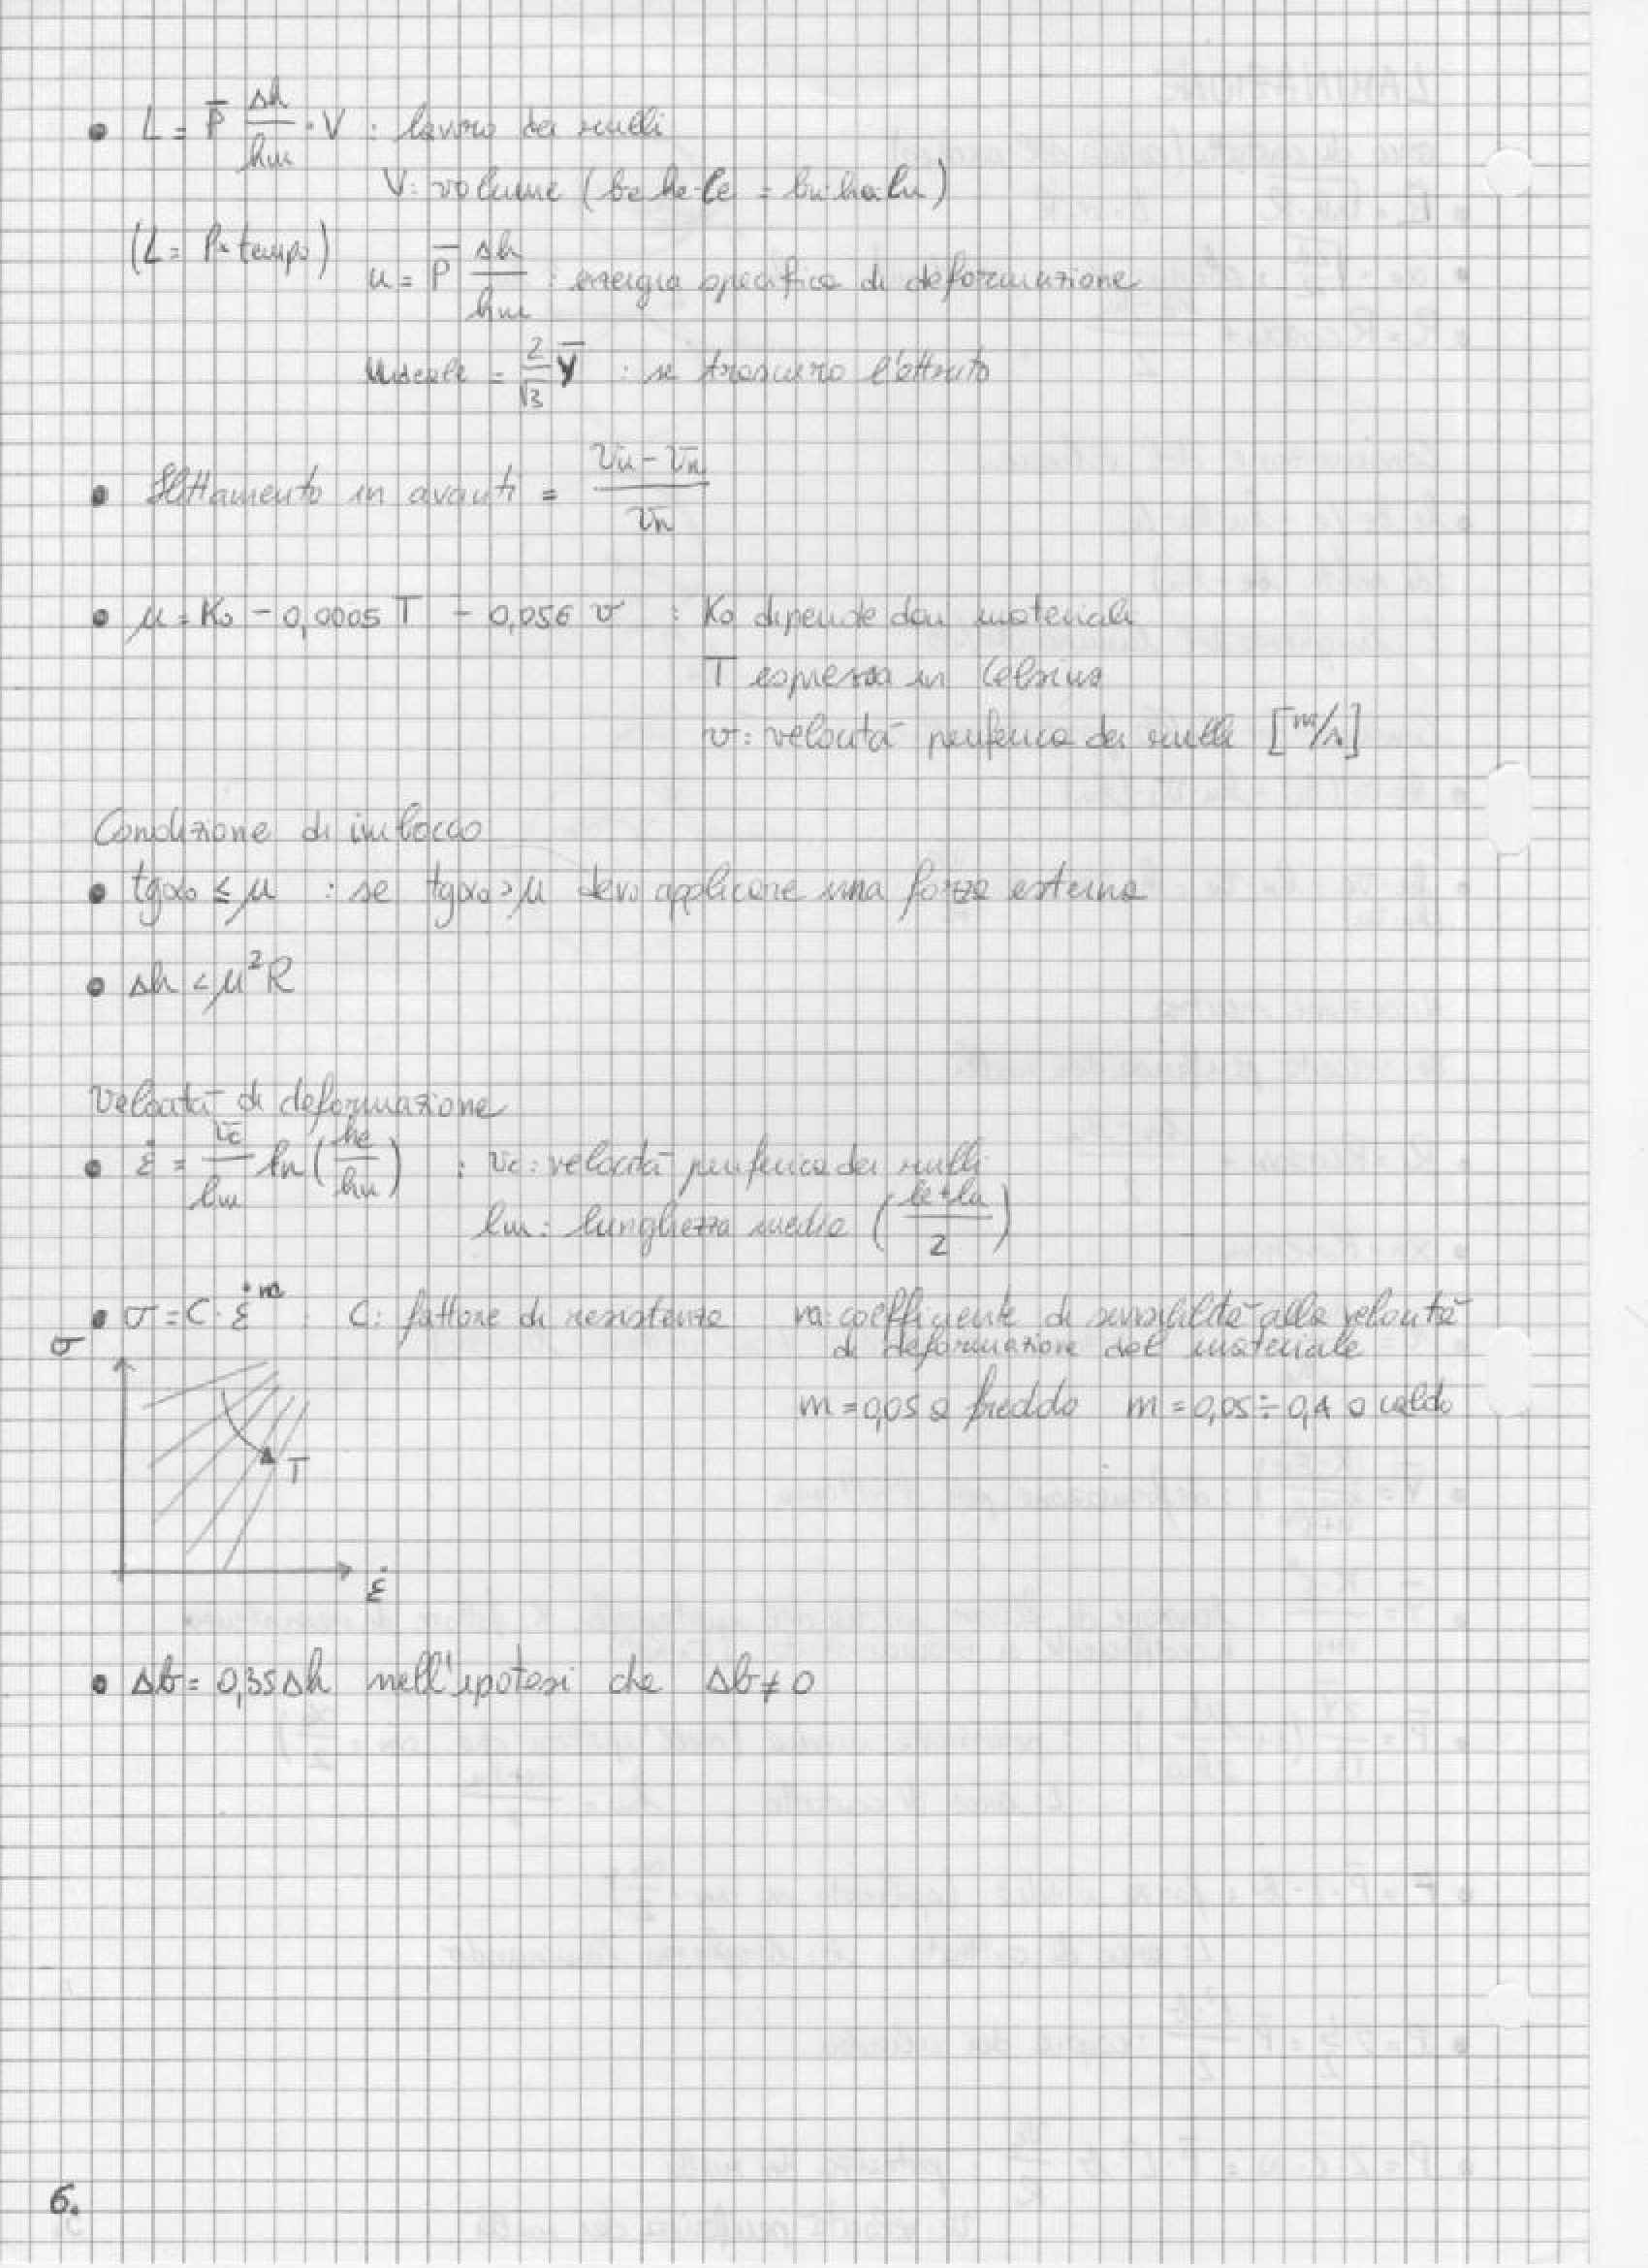 • L = P̄ Δh/hm · V : lavoro dei rulli
V: volume (be·he·le = bu·hu·lu)
(L = P · tempo)
u = P̄ Δh/hm : energia specifica di deformazione
uideale = 2/√3 Ȳ : se trascuro l'attrito
• Slittamento in avanti = (vu - vn)/vn
• μ = Ko - 0,0005 T - 0,056 v : Ko dipende dai materiali
T espressa in Celsius
v: velocità periferica dei rulli [m/s]
Condizione di imbocco
• tgαo ≤ μ : se tgαo > μ devo applicare una forza esterna
• Δh < μ²R
Velocità di deformazione
• ε̇ = vc/lm ln(he/hu) : vc: velocità periferica dei rulli
lm: lunghezza media ((le+lu)/2)
• σ = C · ε̇^m : C: fattore di resistenza m: coefficiente di sensibilità alla velocità
di deformazione del materiale
m = 0,05 a freddo m = 0,05 ÷ 0,4 a caldo
σ
T
ε̇
• Δb = 0,35Δh nell'ipotesi che Δb ≠ 0
6.